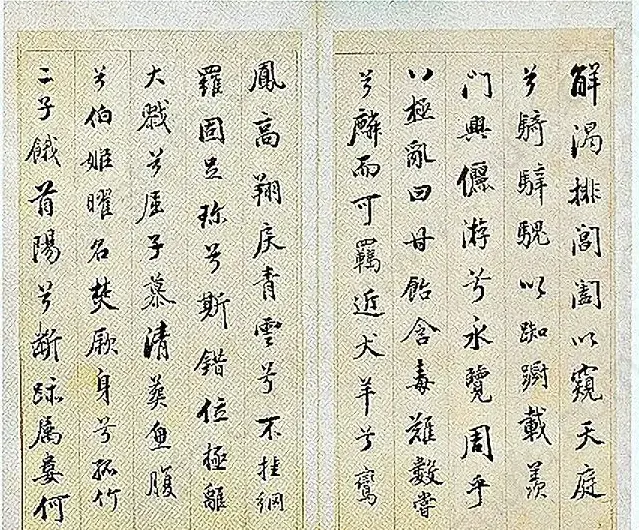 解渴排閶闔以窺天庭
兮騎騂騩以踟躕載羨
門與儷游兮永覽周乎
八極亂曰毋飴含毒難數嘗
兮麟而可羈近犬羊兮鸞
鳳高翔戾青雲兮不挂網
羅固足珍兮斯錯位極離
大戮兮屈子慕清葬魚腹
兮伯姬曜名焚厥身兮孤竹
二子餓首陽兮斷跡属婁何